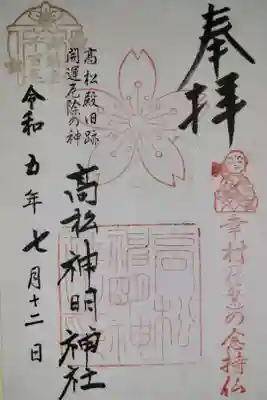 奉拝
幸村の念持仏
高松殿旧跡
開運厄除の神
高松神明神社
高松神明神社
令和五年七月十二日